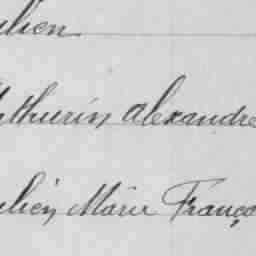 ulien
athurin alexandre
ulien Marie Franço